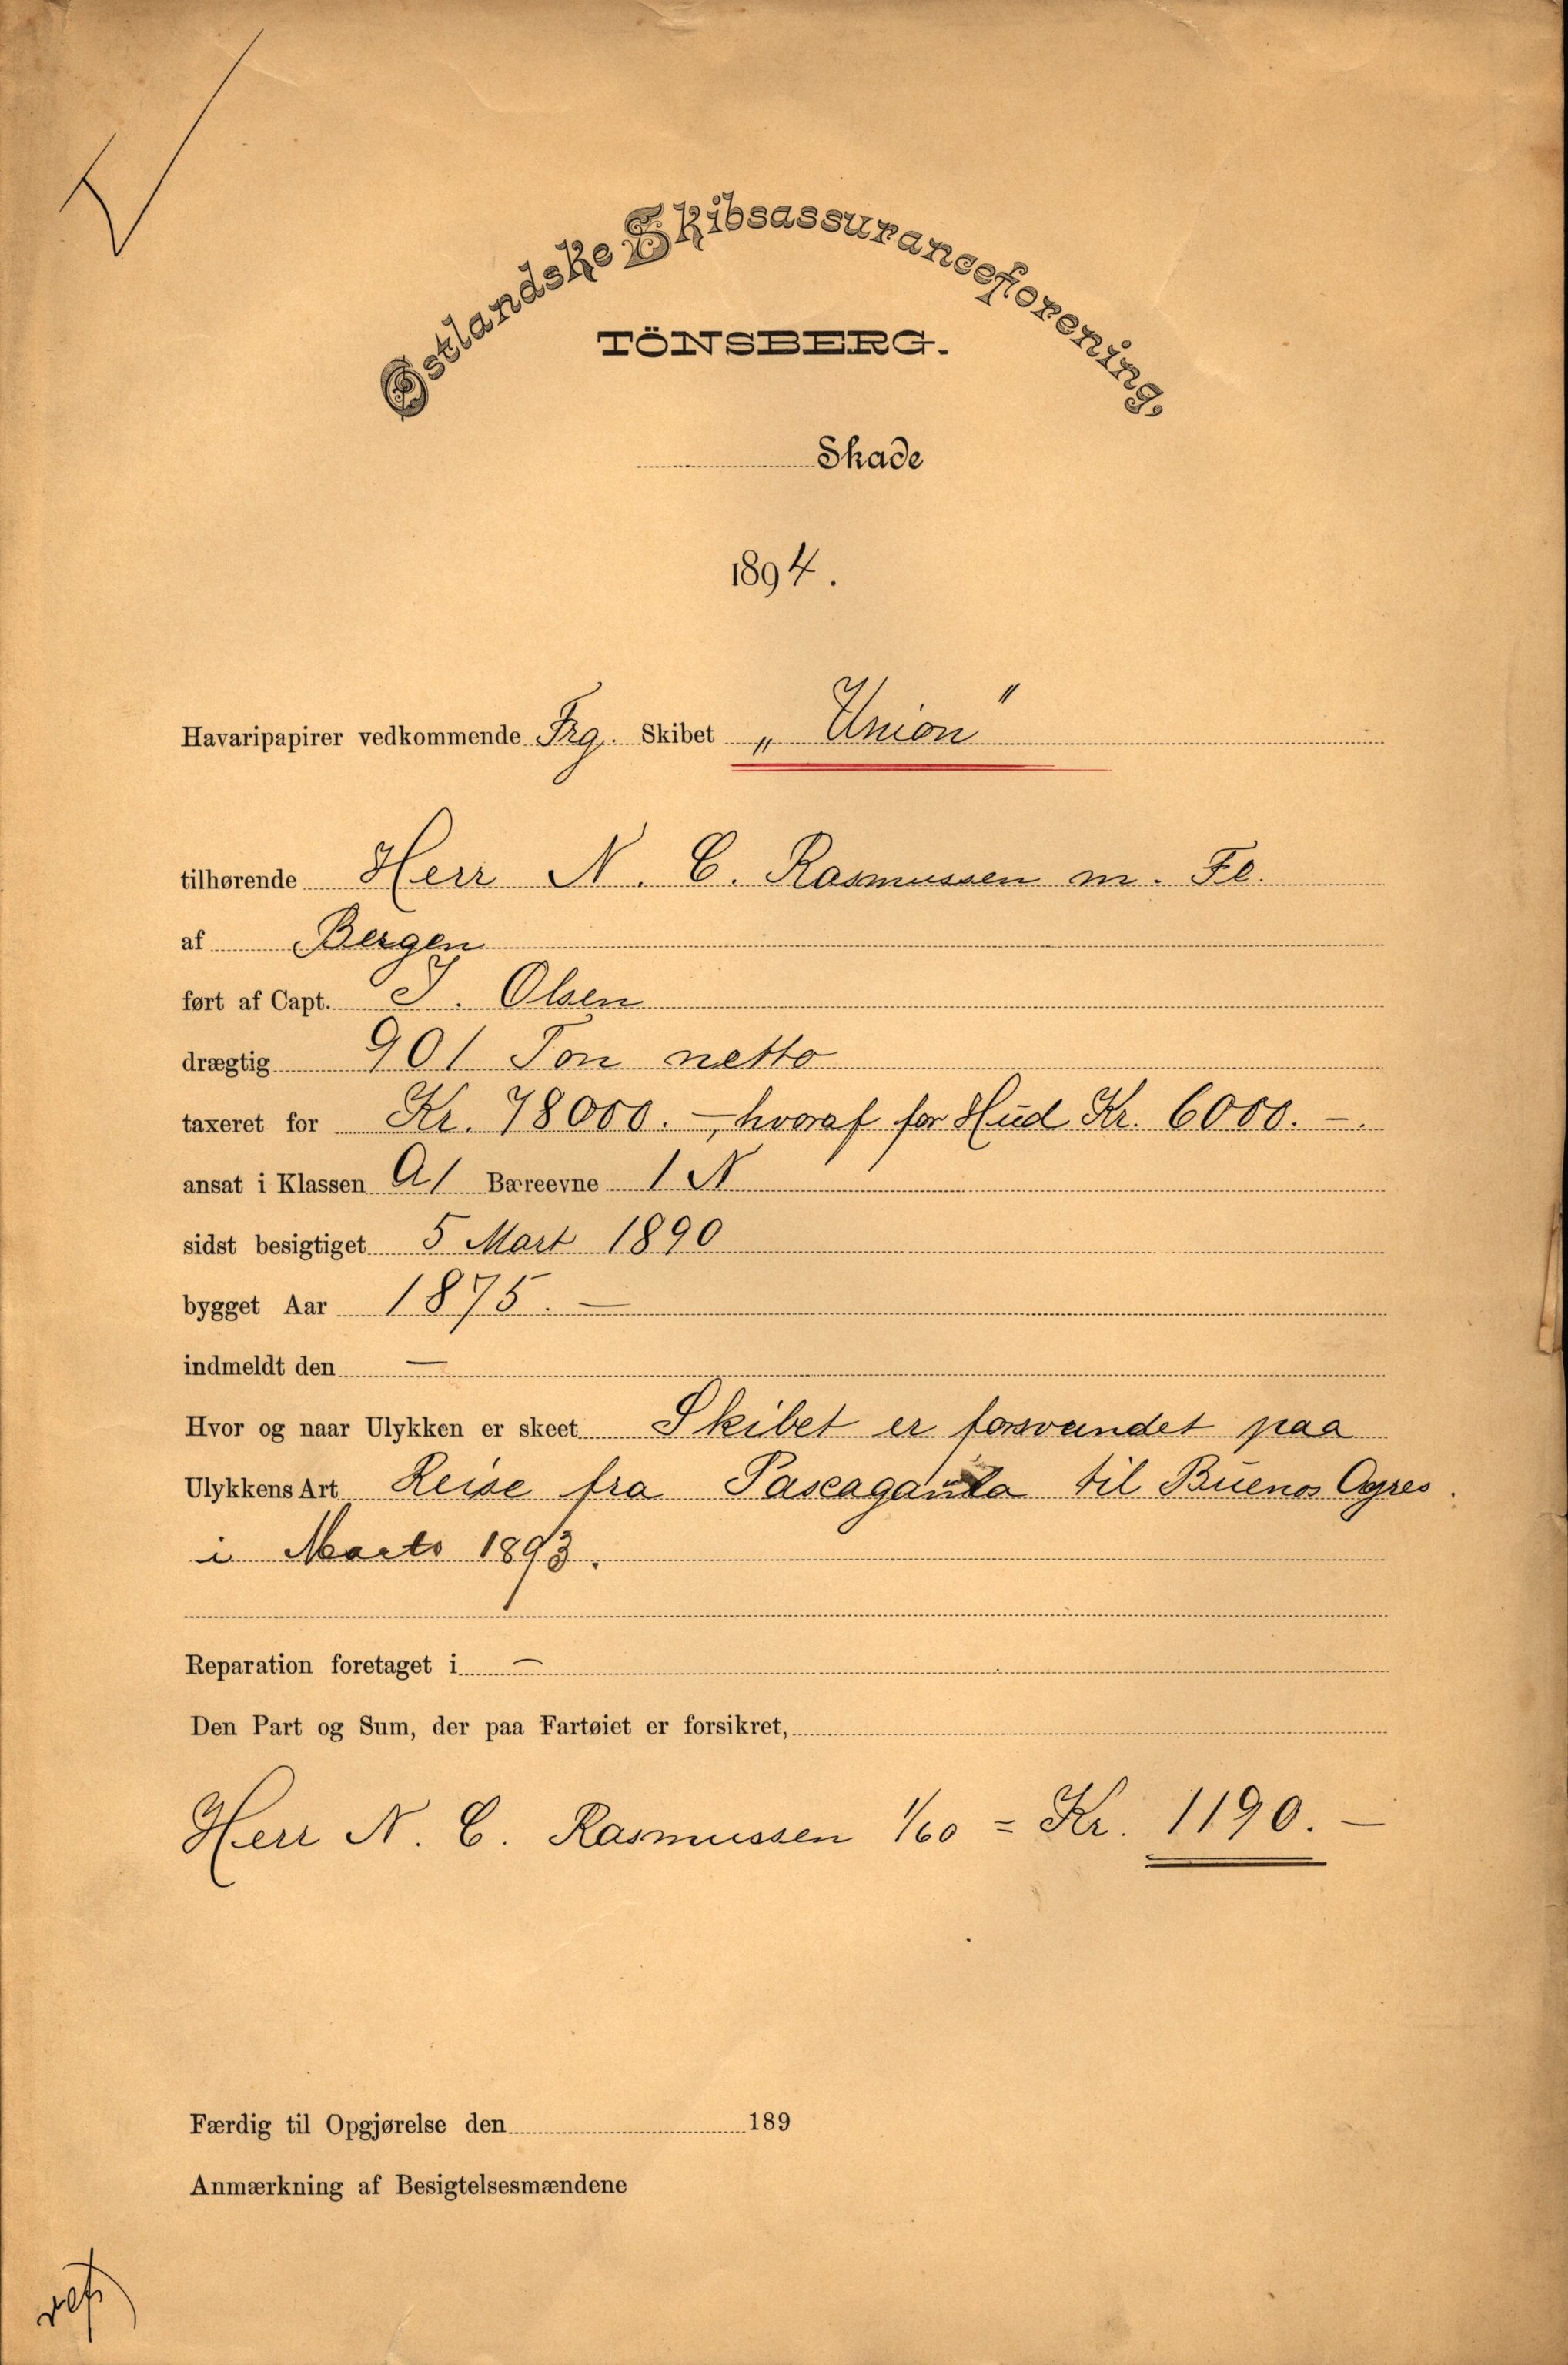 Østlandske Skibsassuranceforening,
TÖNSBERG.
Skade
1894.
Havaripapirer vedkommende Frg. Skibet „Union"
tilhørende Herr N. C. Rasmussen m. Fl.
af Bergen
ført af Capt. J. Olsen
drægtig 901 Ton netto
taxeret for Kr. 78000. -, hvoraf for Hud Kr. 6000. -.
ansat i Klassen A1 Bæreevne 1 N
sidst besigtiget 5 Mart 1890
bygget Aar 1875. —
indmeldt den —
Hvor og naar Ulykken er skeet Skibet er forsvundet paa
Ulykkens Art Reise fra Pascagaula til Buenos Ayres.
i Marts 1893.
Reparation foretaget i —
Den Part og Sum, der paa Fartøiet er forsikret,
Herr N. C. Rasmussen 1/60 = Kr. 1190. —
Færdig til Opgjørelse den 189
Anmærkning af Besigtelsesmændene